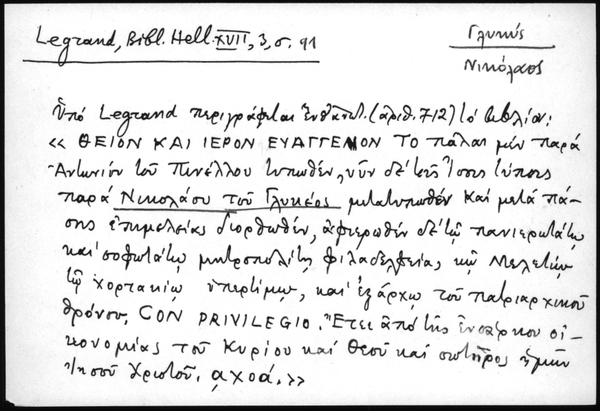 Legrand, Bibl. Hell. XVII, 3, σ. 91
Γλυκύς
Νικόλαος
Ὑπό Legrand περιγράφεται ἐνθ' (ἀριθ. 712) τό βιβλίον:
« ΘΕΙΟΝ ΚΑΙ ΙΕΡΟΝ ΕΥΑΓΓΕΛΙΟΝ ΤΟ πάλαι μέν παρά
Ἀντωνίου τοῦ Πινέλλου τυπωθέν, νῦν δέ τοῖς ἴσοις τύποις
παρά Νικολάου τοῦ Γλυκέος μετατυπωθέν καί μετά πά-
σης ἐπιμελείας διορθωθέν, ἀφιερωθέν δέ τῷ πανιερωτάτῳ
καί σοφωτάτῳ μητροπολίτῃ Φιλαδελφείας, κῳ Μελετίῳ
τῷ Χορτακίῳ ὑπερτίμῳ, καί ἐξάρχῳ τοῦ πατριαρχικοῦ
θρόνου, CON PRIVILEGIO. Ἔτει ἀπό τῆς ἐνσάρκου οἰ-
κονομίας τοῦ Κυρίου καί Θεοῦ καί σωτῆρος ἡμῶν
Ἰησοῦ Χριστοῦ, αχοά. »